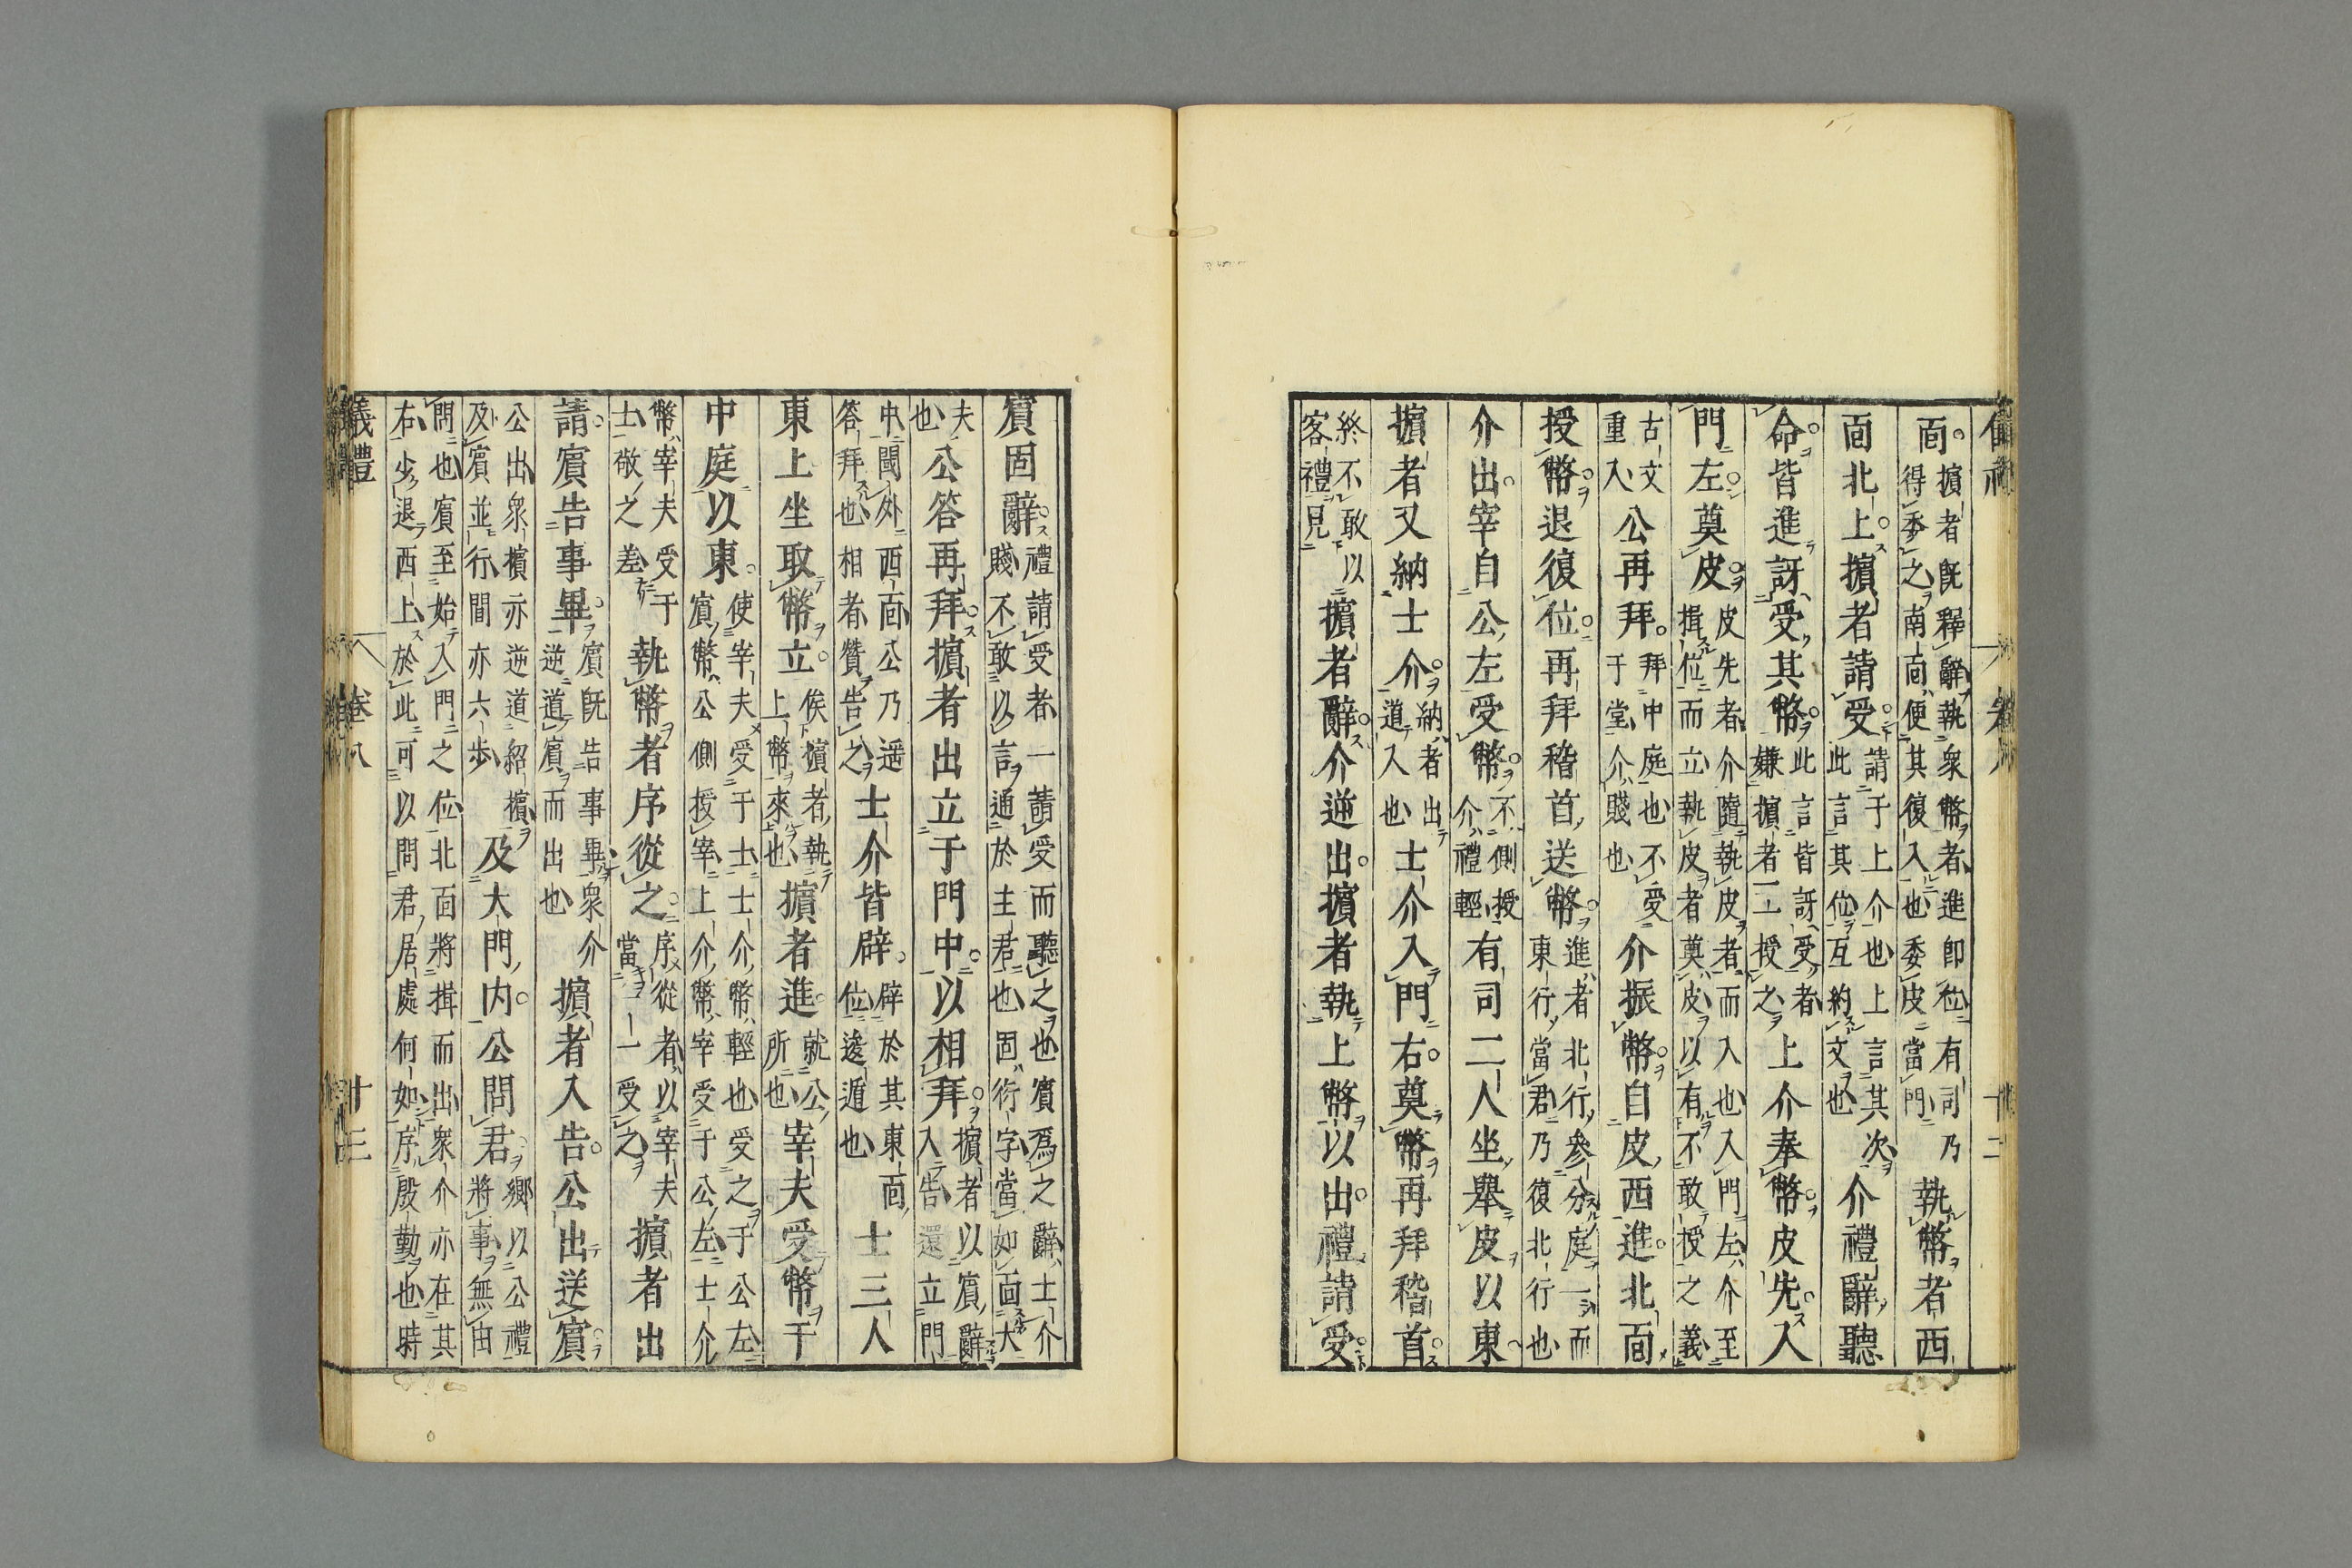 面擯者既釋辭執衆幣者進即位有司乃得委之南面便其復入也委皮當門執幣者西
面北上擯者請受請于上介也上言其次此言其位互約文也介禮辭聽
命皆進訝受其幣此言皆訝受者嫌擯者一一授之上介奉幣皮先入
門左奠皮皮先者介隨執皮者而入也入門左介至揖位而立執皮者奠皮以有不敢授之義
古文重入公再拜拜中庭也不受于堂介賤也介振幣自皮西進北面
授幣退復位再拜稽首送幣進者北行參分庭一而東行當君乃復北行也
介出宰自公左受幣不側授介禮輕有司二人坐舉皮以東
擯者又納士介納者出道入也士介入門右奠幣再拜稽首
終不敢以客禮見擯者辭介逆出擯者執上幣以出禮請受
賓固辭禮請受者一請受而聽之也賓爲之辭士介賤不敢以言通於主君也固衍字當如面大
夫也公答再拜擯者出立于門中以相拜擯者以賓辭入告還立門
中閾外西面公乃遥答拜也相者贊告之士介皆辟辟於其東面位逡遁也士三人
東上坐取幣立俟擯者執上幣來也擯者進就公所也宰夫受幣于
中庭以東使宰夫受于士士介幣輕也受之于公左賓幣公側授宰上介幣宰受于公左士介
幣宰夫受于士敬之差執幣者序從之序從者以宰夫當一一受之擯者出
請賓告事畢賓既告事畢衆介逆道賓而出也擯者入告公出送賓
公出衆擯亦逆道紹擯及賓並行間亦六步及大門内公問君鄉以公禮將事無由
問也賓至始入門之位北面將揖而出衆介亦在其右少退西上於此可以問君居處何如序殷勤也時
儀禮 卷八 十三